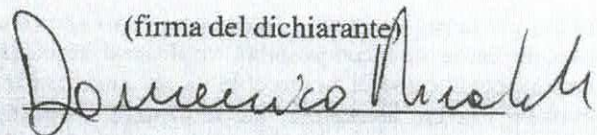 (firma del dichiarante)
Domenico